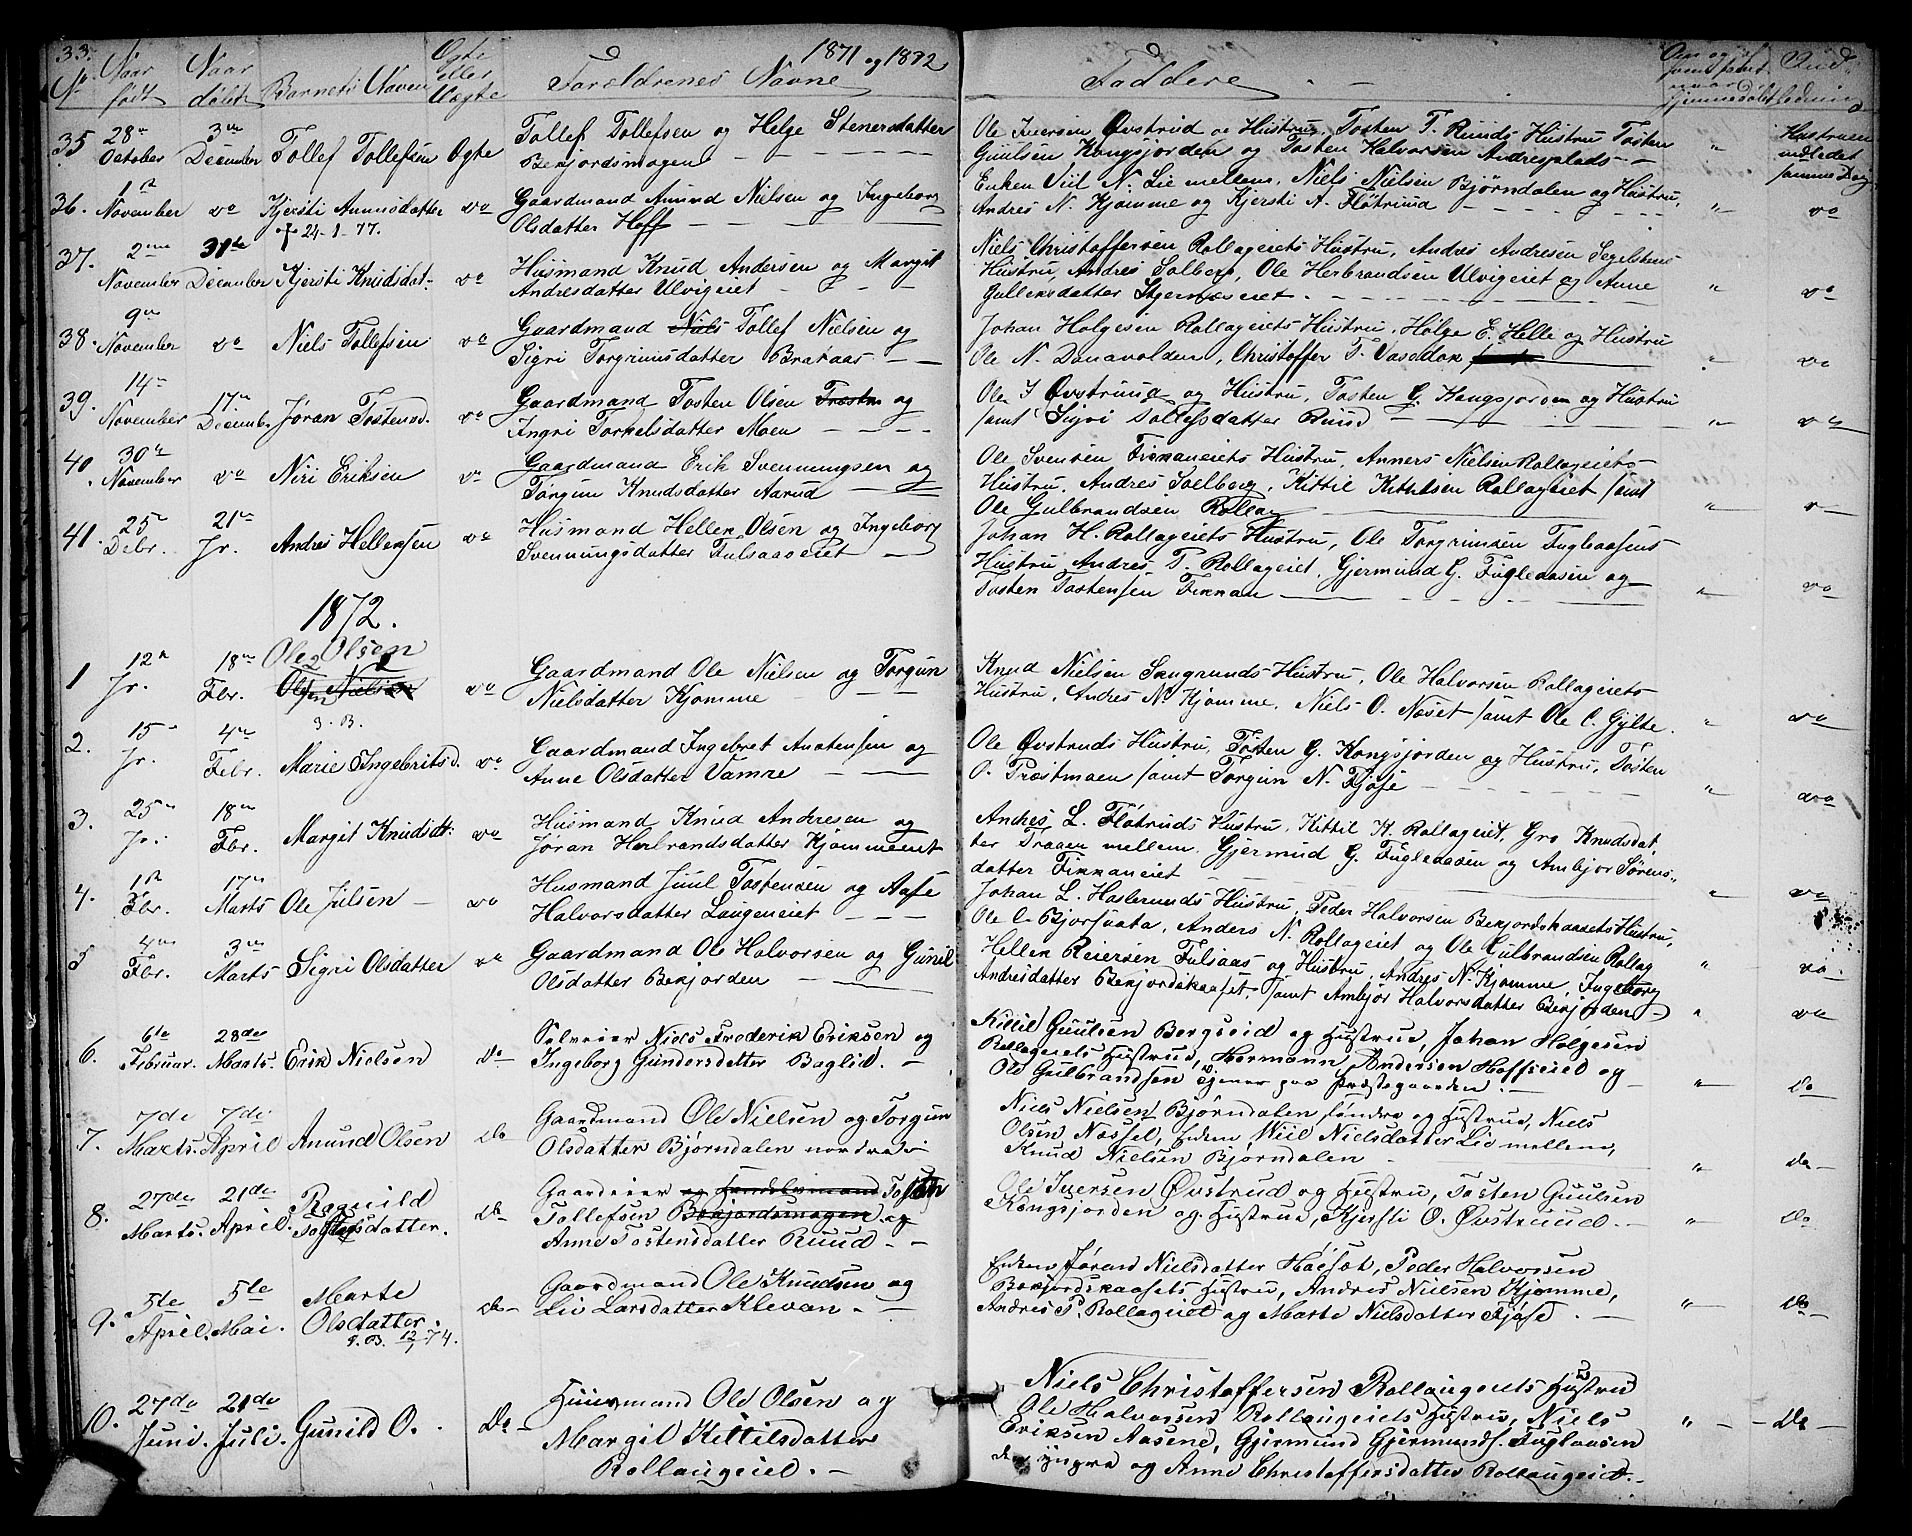 33.
1871 og 1872
No Naar født Naar døbt Barnets Navn Ægte eller Uægte Forældrenes Navne Faddere
35 28de October 3die December Tollef Tollefsen Ægte Tollef Tollefsen og Helge Stenersdatter
Bekjordsmogen
Ole Iversen Øvstrud og Hustru, Tosten T. Ruuds Hustru Tosten
Guulsen Kongsjorden og Tosten Halvorsen Andresplads
Hustruen indledet samme Dag
36. 1st November do Kjersti Amundsdatter do Gaardmand Amund Nielsen og Ingeborg
24-1-77. Olsdatter Hoff
Enken Viil N. Lie mellem, Niels Nielsen Bjørndalen og Hustru,
Andres N. Kjomme og Kjersti A. Fløtrud do
37. 2den November 31te December Kjersti Knudsdat. do Husmand Knud Andersen og Margit
Andresdatter Ulvigeiet
Niels Christoffersen Rollageiets Hustru, Andres Andresen
Hustru, Andres Solberg, Ole Herbrandsen Ulvigeiet og Anne
Gullensdatter do
38. 9de November do Niels Tollefsen do Gaardmand Niels Tollef Nielsen og
Sigri Torgrimsdatter Brakaas
Johan Holgesen Rollageiets Hustru, Holge E. Helle og Hustru
Ole N. Donavolden, Christoffer T. do
39. 14de November 17de December Jøran Tostensd. do Gaardmand Tosten Olsen og
Ingri Torkelsdatter Moen
Ole I Øvstrud og Hustru, Tosten G. Kongsjorden og Hustru
samt Sigri Tollefsdatter Ruud do
40. 30te November do Niri Eriksen do Gaardmand Erik Svenningsen og
Torgun Knudsdatter Aarud
Ole Svensen Finnaneiets Hustru, Anners Nielsen Rollageiets
Hustru, Andres Soelberg, Kittil Kittilsen Rollageiet samt
Ole Gulbrandsen Rollag
41. 25 Debr. 21de Jr. Andres Hellensen do Husmand Hellen Olsen og Ingeborg
Svenningsdatter Fulsaaseiet
Johan H. Rollageiets Hustru, Ole Torgrimsen Fugleaasens
Hustru, Andres T. Rollageiet, Gjermund G. Fugleaasen og
Tosten Tostensen Finnan do
1872.
Ole Olsen
1 12te Jr. 18de Fbr. do Gaardmand Ole Nielsen og Torgun
Nielsdatter Kjomme
Knud Nielsen Hustru, Ole Halvorsen Rollageiets
Hustru, Andres N. Kjomme, Niels O. Nøset samt Ole C. Gylte. do
2. 15 Jr. 4de Febr. Marie Ingebritsd. do Gaardmand Ingebret og
Anne Olsdatter Vamre
Ole Øvstruds Hustru, Tosten G. Kongsjorden og Hustru, Tosten
O. Præstmoen samt Torgun N. Fjøse do
3. 25 Jr. 18de Fbr. Margit Knudsdt: do Husmand Knud Andresen og
Jøran Herbrandsdatter Kjommeeiet
Andres L. Fløtruds Hustru, Kittil K. Rollageiet, Gro Knudsdat,
ter Traaen mellem, Gjermud G. Fugleaasen og Ambjør Sørens,,
datter Finnaneiet do
4. 1st Fbr. 17de Marts Ole Julsen do Husmand Juul Tostensen og Aase
Halvorsdatter Laugeneiet
Johan L. Haslerunds Hustru, Peder Halvorsen Bekjordskaasets Hustru,
Ole C. Anders N. Rollageiet og Ole Gulbrandsen Rollag do
5 4de Fbr. 3die Marts Sigri Olsdatter do Gaardmand Ole Halvorsen og Gunil
Olsdatter Bekjorden
Hellen Reiersen Fulsaas og Hustru, Andres N. Kjomme, Ingeborg
Andresdatter Bekjordskaaset, samt Ambjør Halvorsdatter Bekjorden do
6. 6te Februar. 28de Marts. Erik Nielsen do Selveier Niels Frederik Eriksen og
Ingeborg Gundersdatter Baglid.
Kittil Guulsen Bergseid og Hustrue, Johan Helgesen
Rollageiets Hustrue, Hermann Andersen Hoffseiet og
Ole Gulbrandsen tjener paa Præstegaarden. do
7. 7de Marts. 7de April Amund Olsen do Gaardmand Ole Nielsen og Torgun
Olsdatter Bjørndalen nordre
Niels Nielsen Bjørndalen søndre og Hustrue, Niels
Olsen Nøssel, Enken Wiil Nielsdatter Lie mellem,
Knud Nielsen Bjørndalen do
8. 27de Marts. 21de April. Ragnild Tostensdatter. do Gaardeier og Handelsmand Tosten
Tollefsen Bekjordsmogen og
Anne Tostensdatter Ruud
Ole Iversen Øvstrud og Hustru, Tosten Guulsen
Kongsjorden og Hustrue, Kjersti O. Øvstruud. do
9. 5te April. 5te Mai. Marte Olsdatter. do Gaardmand Ole Knudsen og
Liv Larsdatter Klevan.
Enken Jørand Nielsdatter Peder Halvorsen
Bekjordskaasets Hustru, Andres Nielsen Kjomme,
Andres P. Rollageiet og Marte Nielsdatter Fjøse. do
10. 27de Juni. 21de Juli. Gunild O. do Huusmand Ole Olsen og
Margit Kittilsdatter
Rollaugeiet.
Niels Christoffersen Rollaugeiets Hustru
Ole Halvorsen Rollaugeiets Hustru, Niels
Eriksen Aasene, Gjermund Gjermunds. Fuglaasen
den yngre og Anne Christoffersdatter Rollaugeiet. do